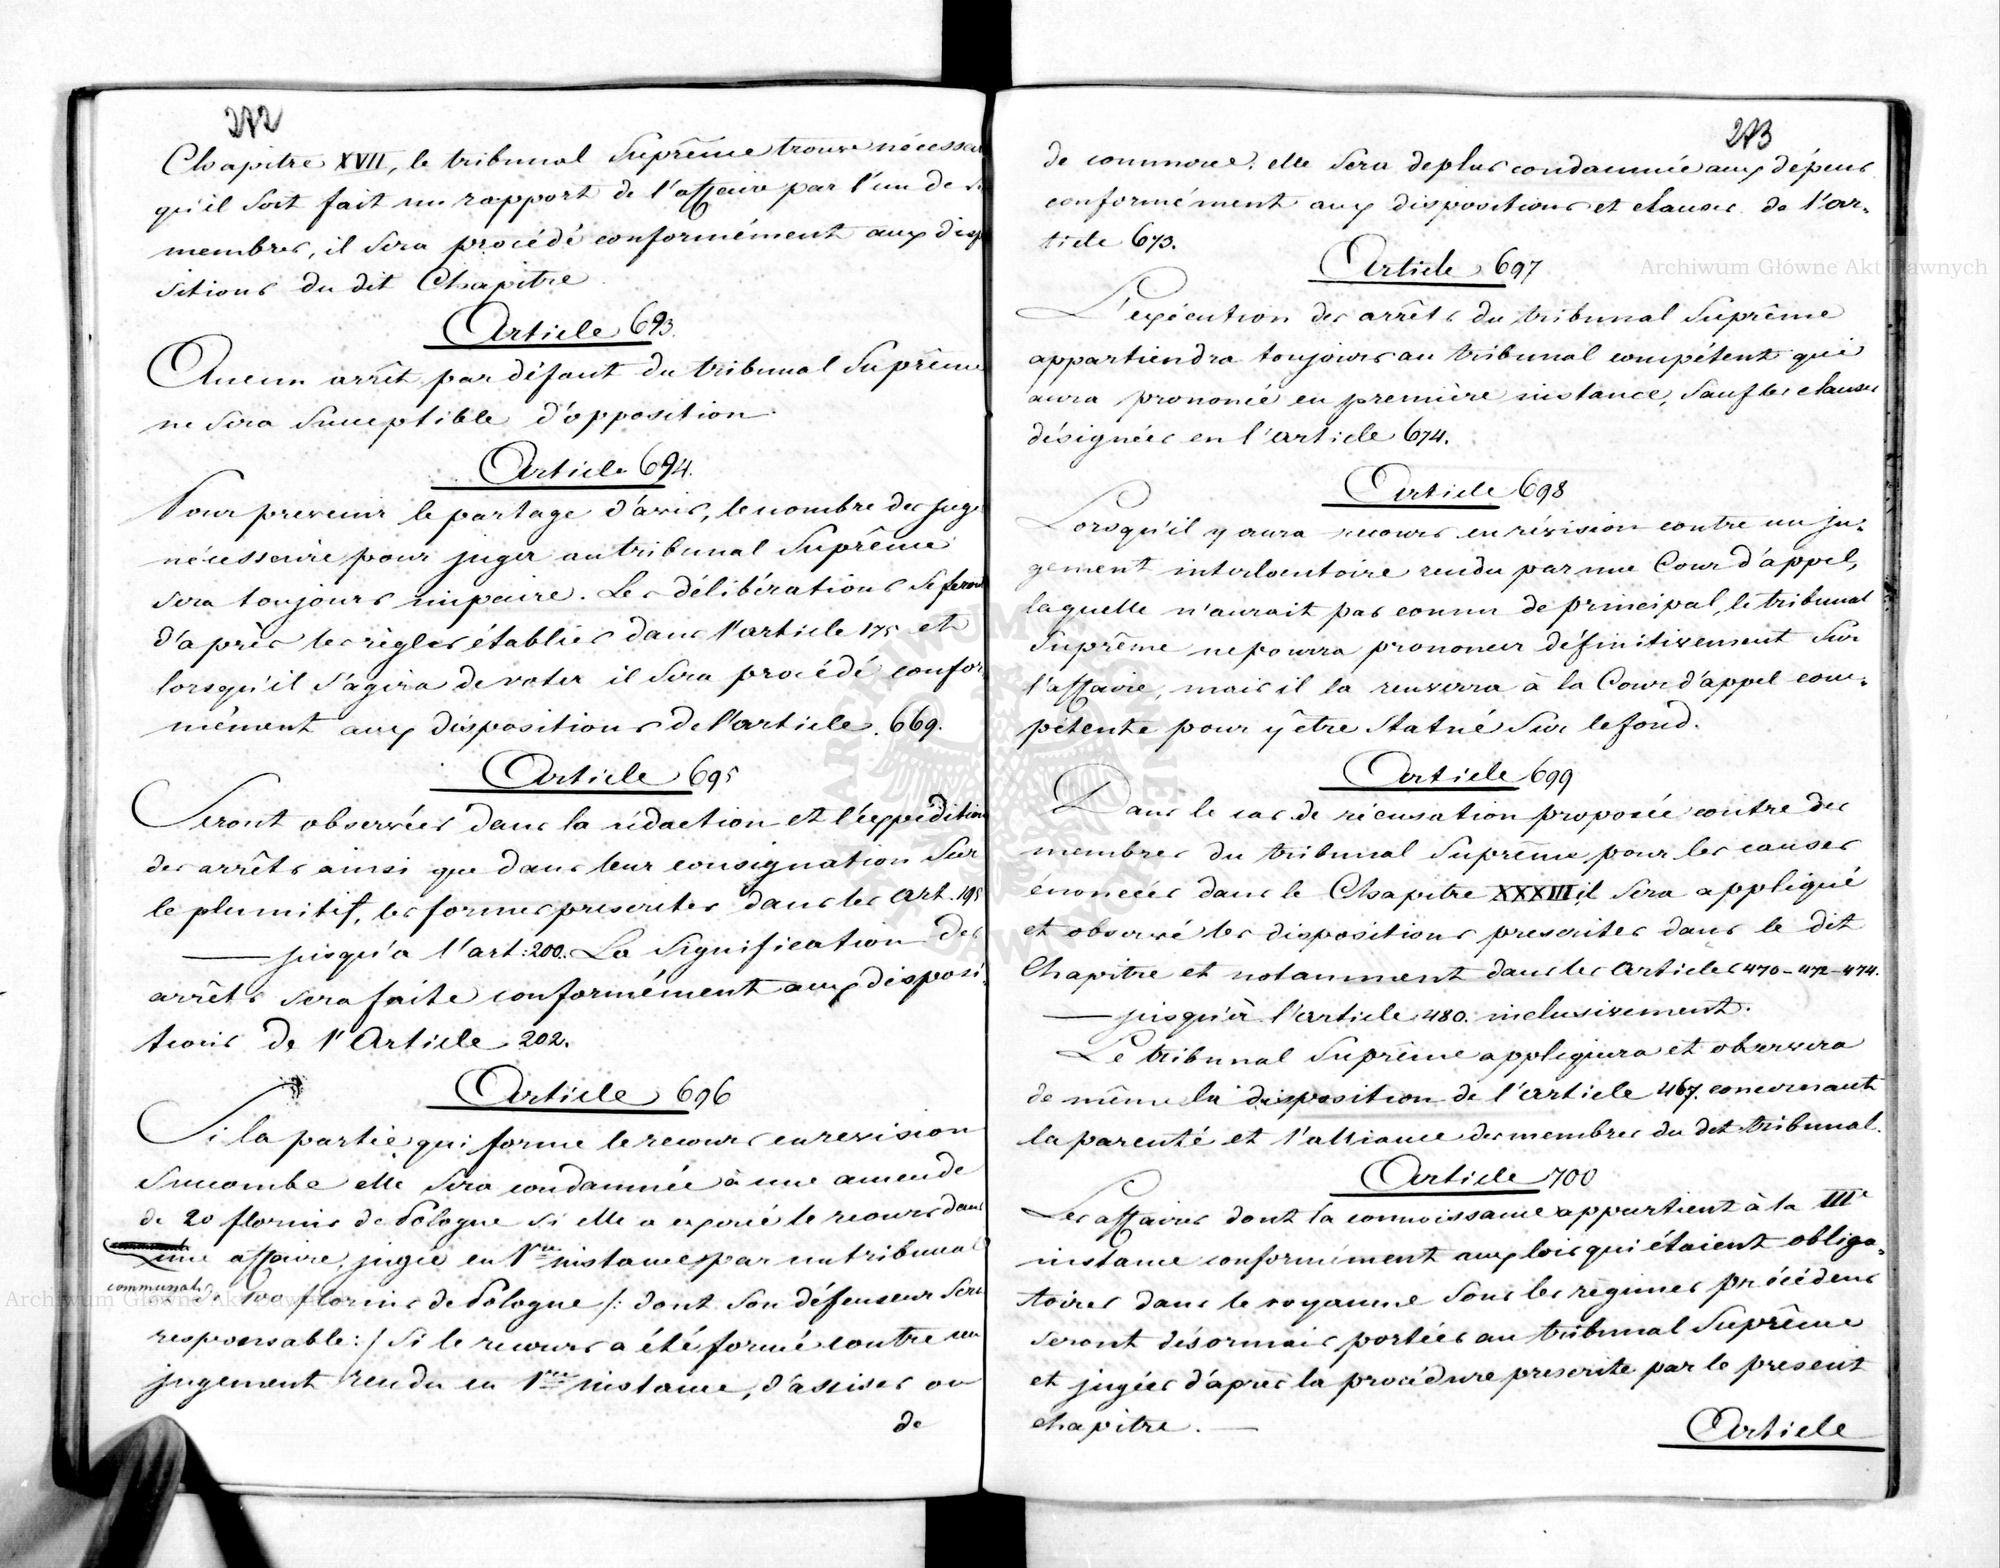 272
Chapitre XVII, le tribunal Suprême trouve nécessai
qu'il soit fait un rapport de l'affaire par l'un de s
membres, il sera procédé conformément aux dispo
sitions du dit Chapitre.
Article 693.
Aucun arrêt par défaut du tribunal Suprême
ne sera susceptible d'opposition.
Article 694.
Pour prevenir le partage d'avis, le nombre des juge
nécessaire pour juger au tribunal Suprême
sera toujours impaire. Les délibérations se feront
d'après les règles établies dans l'article 175 et
lorsqu'il s'agira de voter il sera procédé confor
mément aux dispositions de l'article 669.
Article 695
Seront observées dans la rédaction et l'expédition
des arrêts ainsi que dans leur consignation sur
le plumitif, les formes prescrites dans les Art. 195
— jusqu'a l'art: 200. La Signification des
arrêts sera faite conformément aux disposi
tions de l'Article 202.
Article 696
Si la partie, qui forme le recours en revision
succombe elle sera condamnée à une amende
de 20 florins de Pologne si elle a exercé le recours dans
une affaire, jugée en 1re instance par un tribunal
communal, de 100 florins de Pologne /: dont son défenseur sera
responsable:/ si le recours a été formé contre un
jugement rendu en 1re instance, d'assises ou
de
273
de commerce. elle sera deplus condamnée aux dépens
conformément aux dispositions et clauses de l'ar-
ticle 673.
Article 697
L'exécution des arrêts du tribunal Suprême
appartiendra toujours au tribunal compétent qui
aura prononcé en première instance, sauf les clauses
désignées en l'article 674.
Article 698
Lorsqu'il y aura recours en révision contre un ju-
gement interlocutoire rendu par une Cour d'appel,
laquelle n'aurait pas connu de principal, le tribunal
Suprême ne pourra prononcer définitivement sur
l'affaire, mais il la renverra à la Cour d'appel com-
pétente pour y être statué sur le fond.
Article 699
Dans le cas de récusation proposée contre des
membres du tribunal Suprême pour les causes
énoncées dans le Chapitre XXXIII, il sera appliqué
et observé les dispositions prescrites dans le dit
Chapitre et notamment dans les Articles 470-472-474.
— jusqu'à l'article 480. inclusivement.
Le tribunal Suprême appliquera et observera
de même la disposition de l'article 467. concernant
la parenté et l'alliance des membres du dit tribunal.
Article 700
Les affaires dont la connoissance appartient à la IIIe
instance conformément aux lois qui étaient obliga-
toires dans le royaume sous les régimes précédens
seront désormais portées au tribunal Suprême
et jugées d'après la procédure prescrite par le present
chapitre. —
Article
Archiwum Główne Akt Dawnych
ARCHIWUM GŁÓWNE AKT DAWNYCH